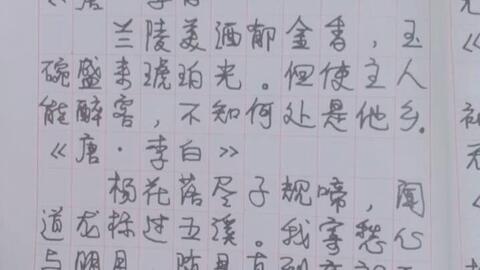 《唐·李白》
兰陵美酒郁金香,玉
碗盛来琥珀光。但使主人
能醉客,不知何处是他乡。
《唐·李白》
杨花落尽子规啼,闻
道龙标过五溪。我寄愁心
与明月